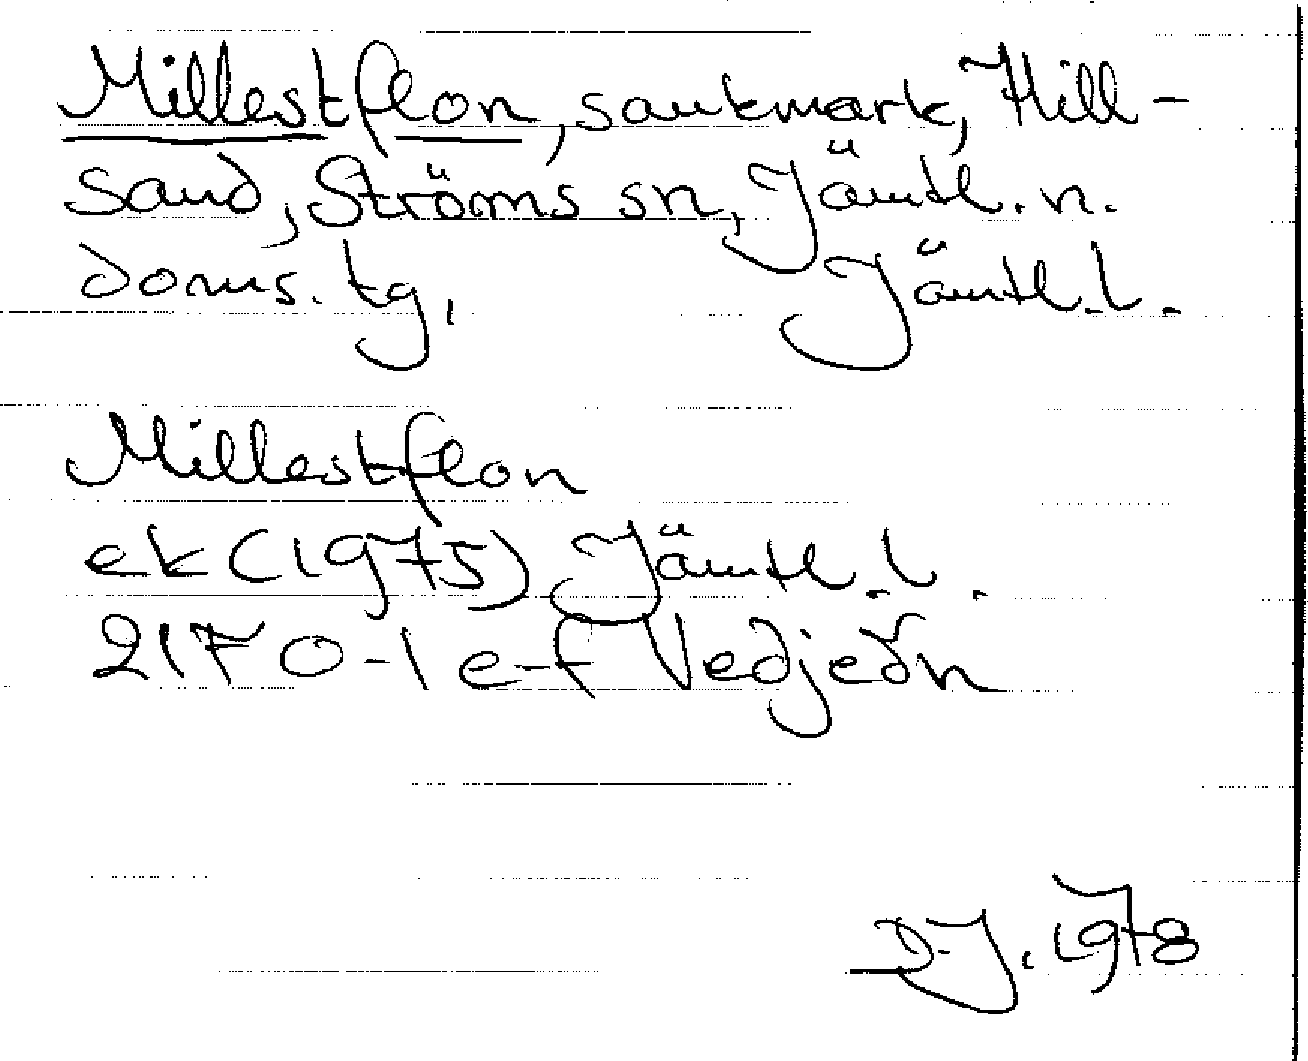 Millestflon, sankmark, Hill-
sand, Ströms sn, Jämtl. n.
doms. tg, Jämtl. l.
Millestflon
ek (1975) Jämtl. l.
21F0-1 e-f Vedjeön
D-J. 1978